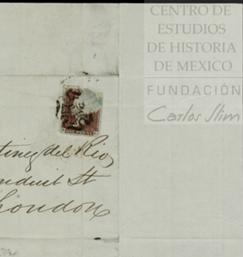 CENTRO DE
ESTUDIOS
DE HISTORIA
DE MEXICO
FUNDACIÓN
Carlos Slim
tinez del Rio
nduit St
London